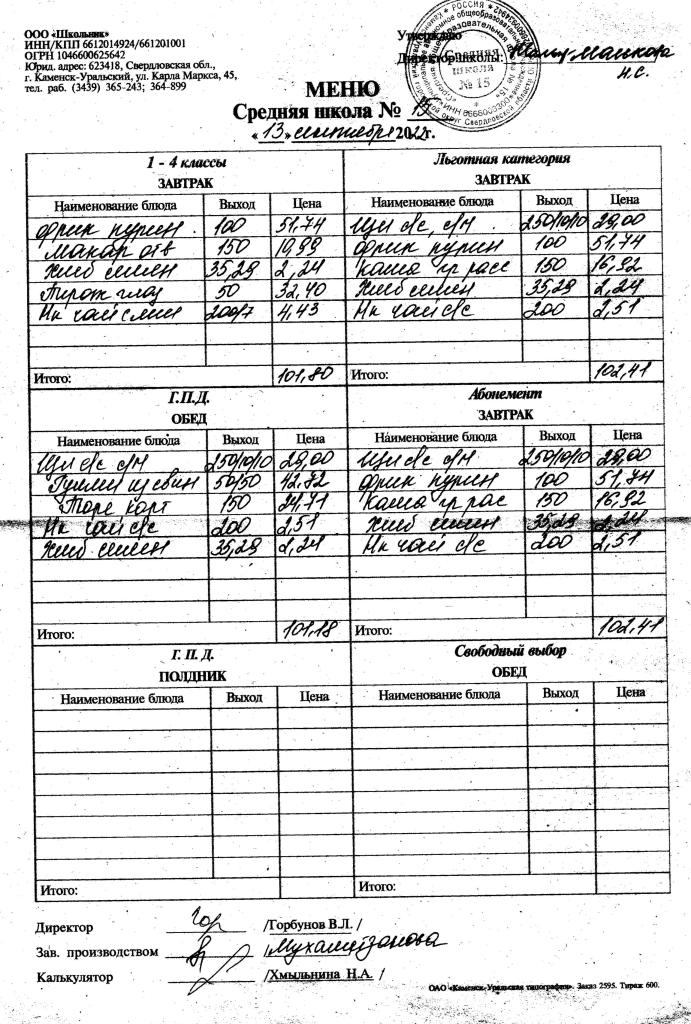 ООО «Школьник»
ИНН/КПП 6612014924/661201001
ОГРН 1046600625642
Юрид. адрес: 623418, Свердловская обл.,
г. Каменск-Уральский, ул. Карла Маркса, 45,
тел. раб. (3439) 365-243; 364-899
Утверждаю
Директор школы:
Н.С.
РОССИЯ
Средняя
школа
№ 15
МЕНЮ
Средняя школа № 15
«13» сентября 2022г.
1 - 4 классы
ЗАВТРАК
Наименование блюда Выход Цена
фрик курин 100 51,74
Макар отв 150 10,99
Хлеб пшен 35,29 2,24
Пирож глаз 50 32,40
Нк чай с лим 200/7 4,43
Итого: 101,80
Льготная категория
ЗАВТРАК
Наименование блюда Выход Цена
Щи с/с, с/м 250/10/10 29,00
фрик курин 100 51,74
Каша гр расс 150 16,92
Хлеб пшен 35,29 2,24
Нк чай с/с 200 2,51
Итого: 102,41
Г.П.Д.
ОБЕД
Наименование блюда Выход Цена
Щи с/с с/м 250/10/10 29,00
Гуляш из свин 50/50 42,72
Пюре карт 150 24,71
Нк чай с/с 200 2,51
Хлеб пшен 35,29 2,24
Итого: 101,18
Абонемент
ЗАВТРАК
Наименование блюда Выход Цена
Щи с/с с/м 250/10/10 29,00
фрик курин 100 51,74
Каша гр рас 150 16,92
Хлеб пшен 35,29 2,24
Нк чай с/с 200 2,51
Итого: 102,41
Г. П. Д.
ПОЛДНИК
Наименование блюда Выход Цена
Итого:
Свободный выбор
ОБЕД
Наименование блюда Выход Цена
Итого:
Директор /Горбунов В.Л. /
Зав. производством /
Калькулятор /Хмыльнина Н.А. /
ОАО «Каменск-Уральская типография». Заказ 2595. Тираж 600.